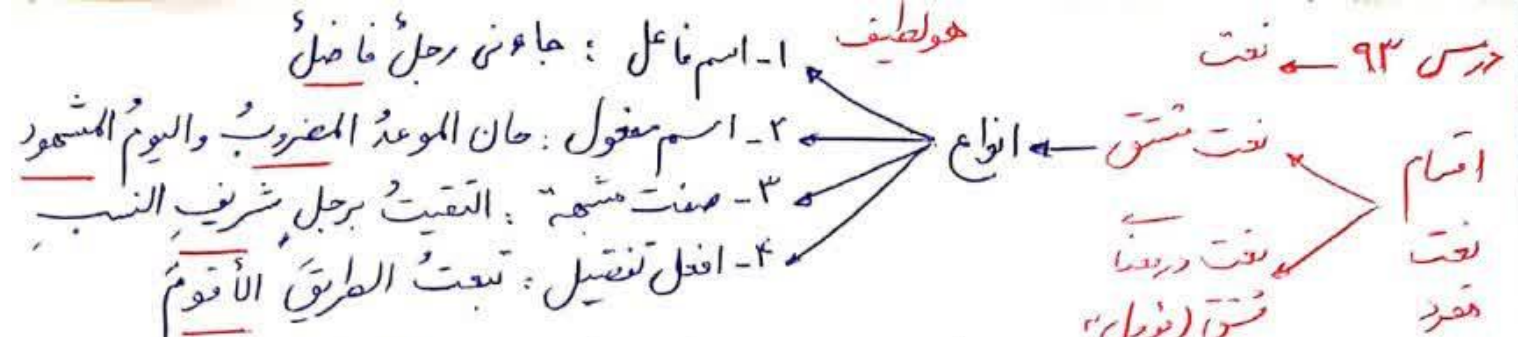 درس ۹۳ ← نعت
هو لطیف
اقسام نعت مفرد
نعت مشتق ← انواع
۱- اسم فاعل : جاءنی رجلٌ فاضلٌ
۲- اسم مفعول : حان الموعدُ المضروبُ والیومُ المشهود
۳- صفت مشبهة : التقیتُ برجلٍ شریفِ النسبِ
۴- افعل تفضیل : تبعتُ الطریقَ الأقومَ
نعت در معنا
مشتق